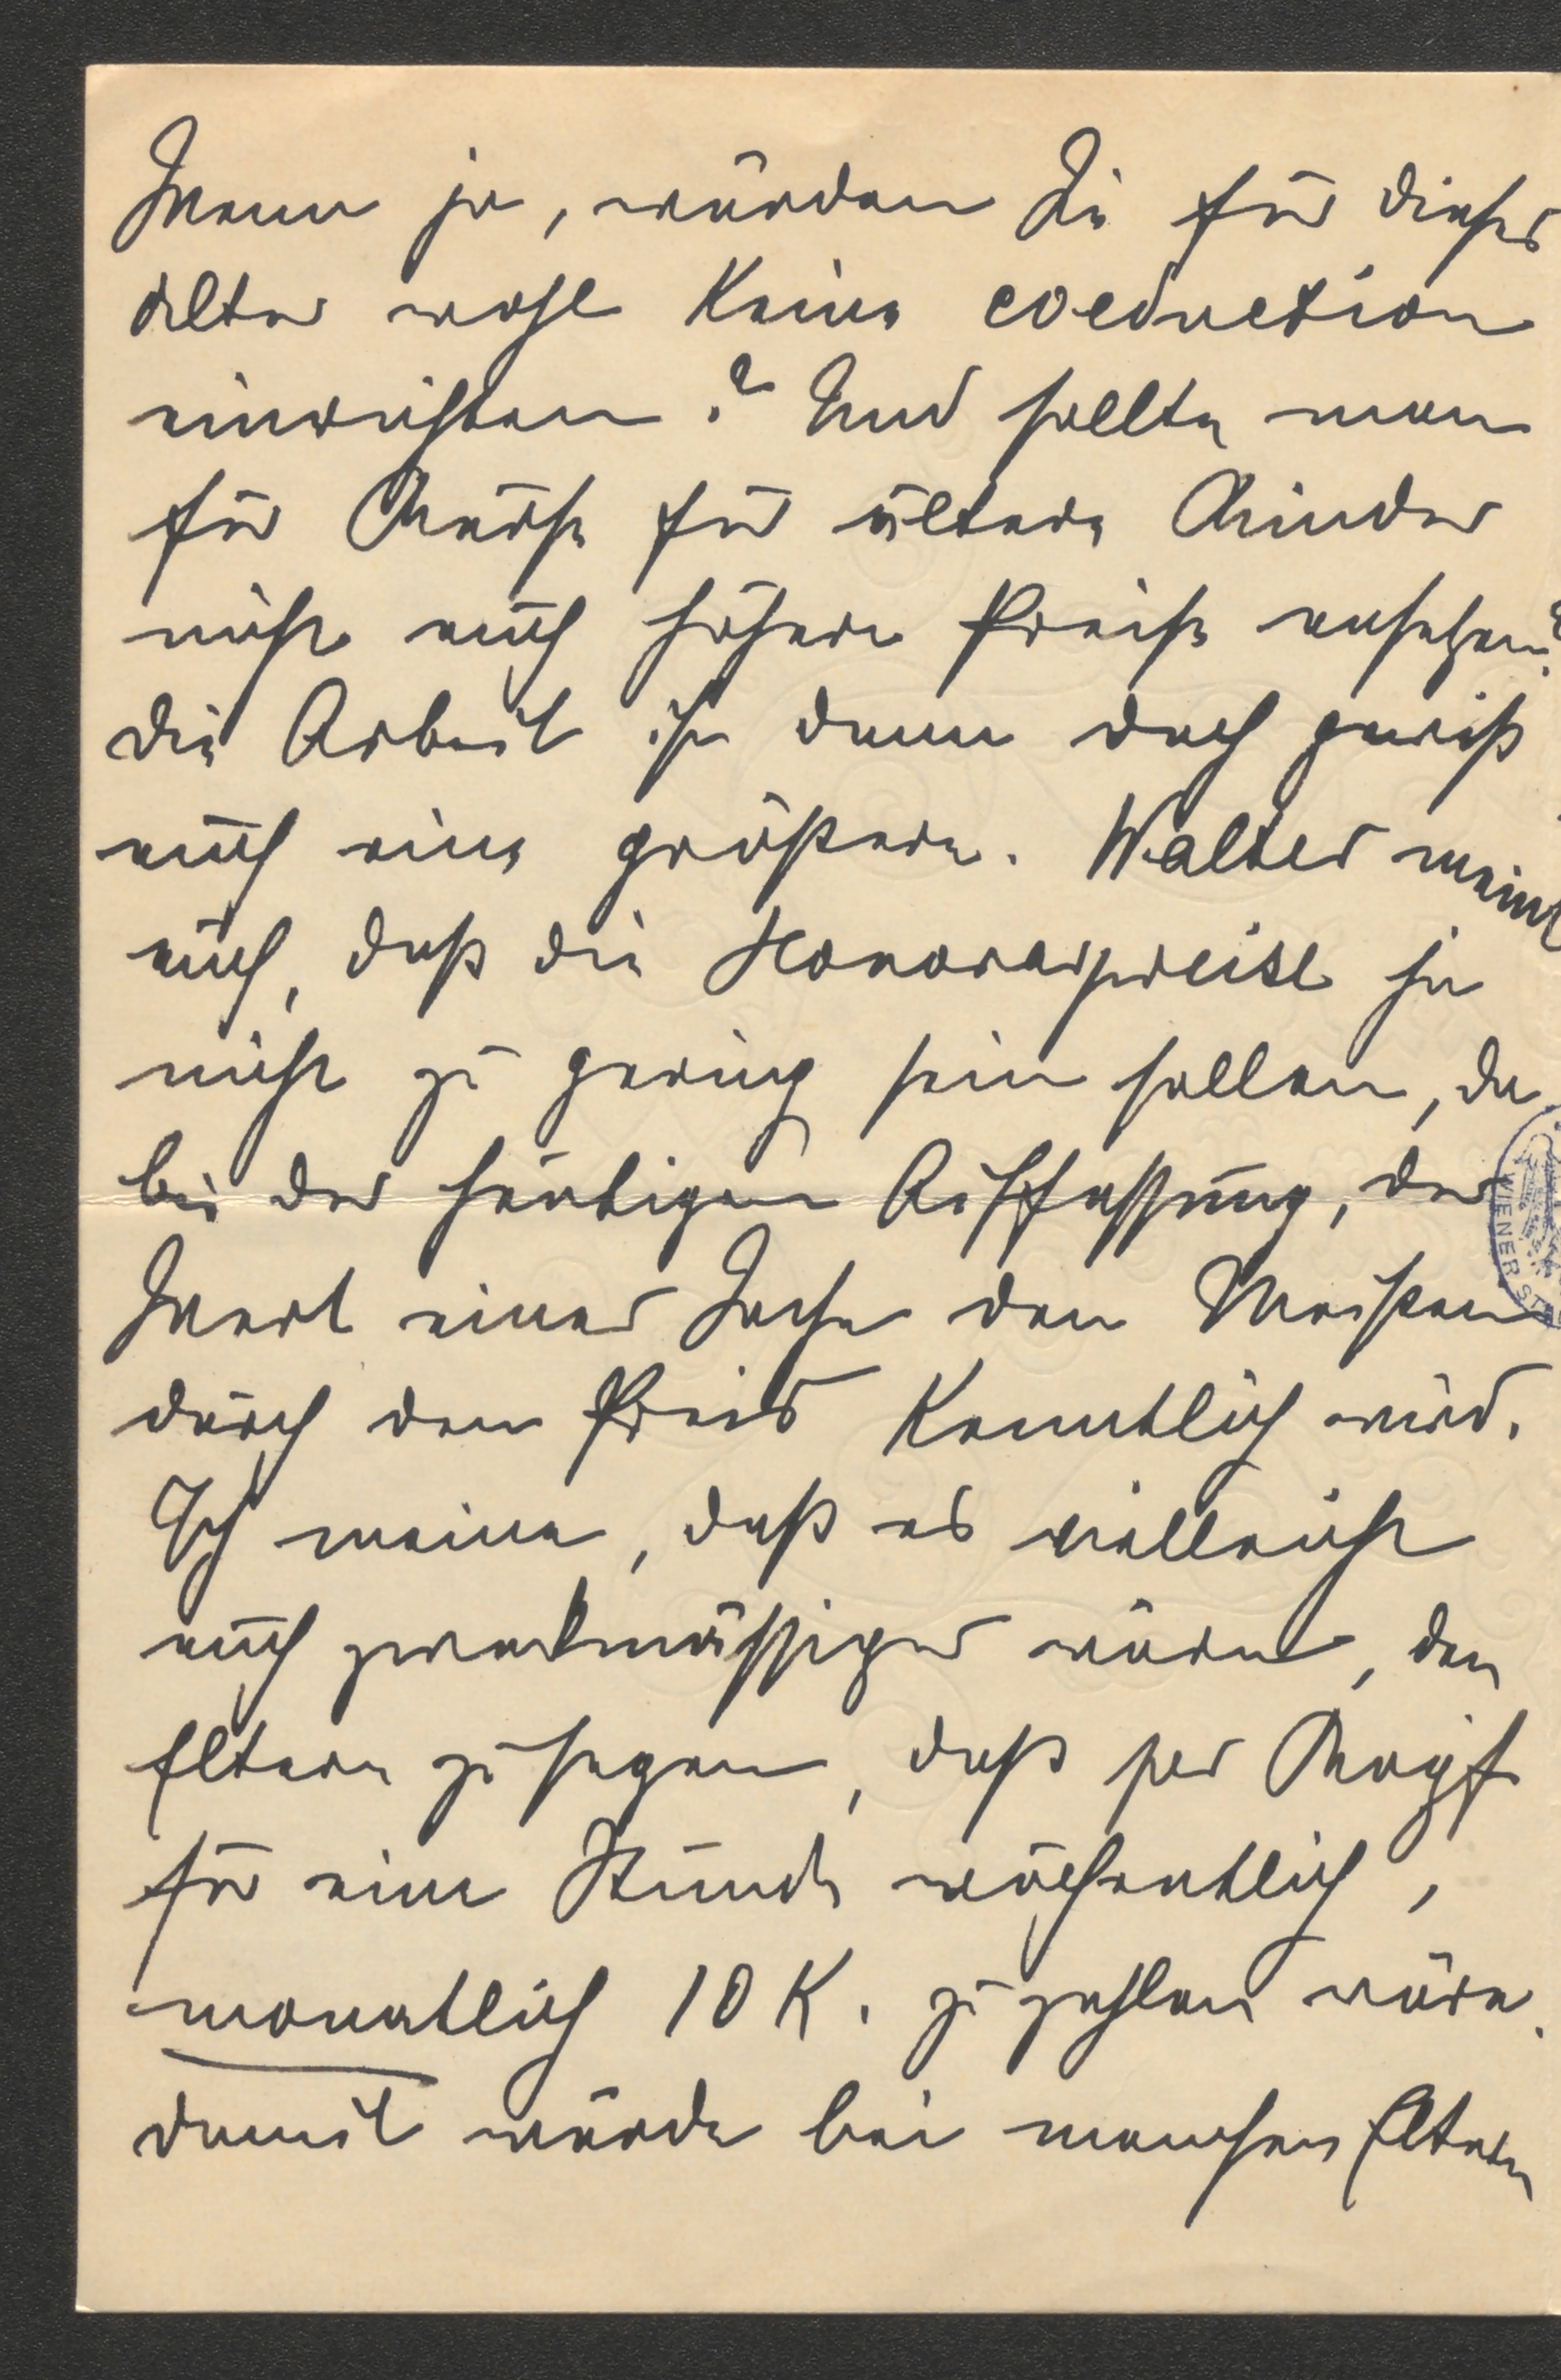 Wenn ja, würden Sie für dieses
Alter wohl keine coeduction
einrichten? Und sollte man
für Kurse für ältere Kinder
nicht auch höhere Preise ansetzen?
die Arbeit ist dann doch gewiß
auch eine größere. Walter meint
auch, daß die Honorarpreise ja
nicht zu gering sein sollen, da
bei der heutigen Auffassung, der
Wert einer Sache den Meisten
durch den Preis kenntlich wird.
Ich meine, daß es vielleicht
auch zweckmässiger wäre, den
Eltern zu sagen, daß per Kopf
für eine Stunde wöchentlich,
monatlich 10 K. zu zahlen wäre.
damit würde bei manchen Eltern
WIENER